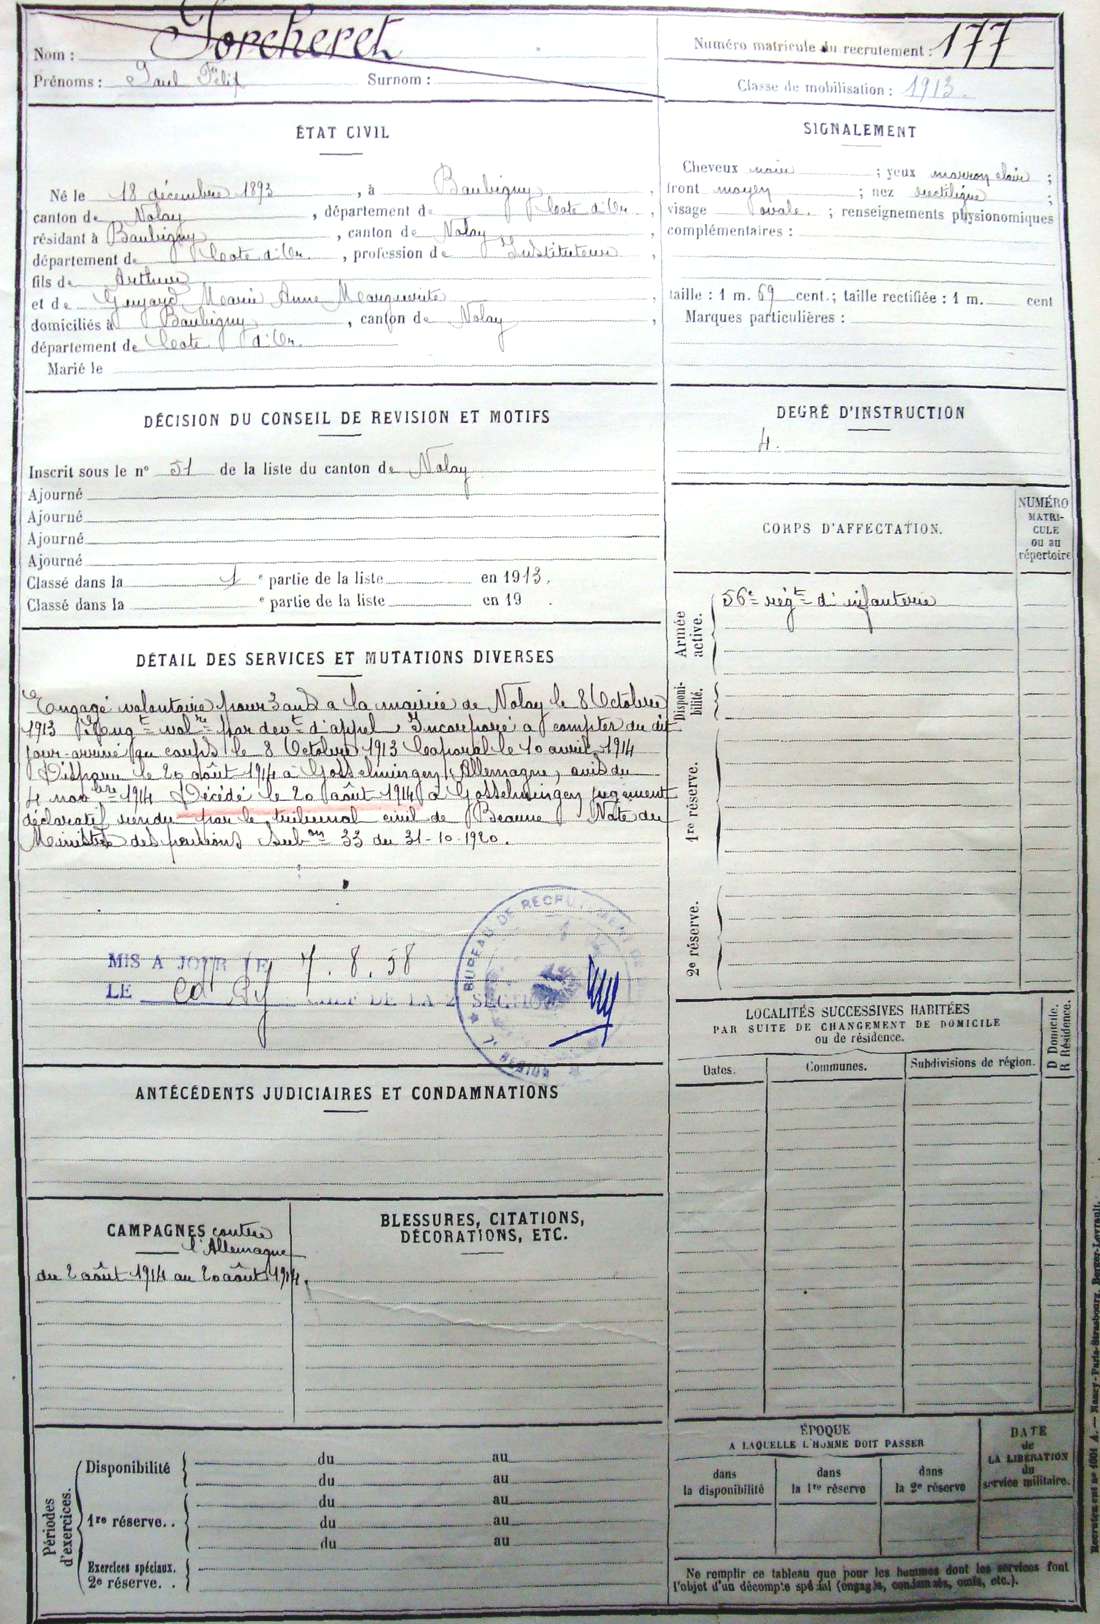 Nom : Porcheret
Numéro matricule du recrutement : 177
Prénoms : Paul Félix Surnom :
Classe de mobilisation : 1913.
ÉTAT CIVIL
Né le 18 décembre 1893, à Baubigny,
canton de Nolay, département de Cote d'Or,
résidant à Baubigny, canton de Nolay
département de Cote d'Or, profession de Instituteur
fils de Arthur
et de Guyard Marie Anne Marguerite,
domiciliés à Baubigny, canton de Nolay,
département de Cote d'Or.
Marié le
SIGNALEMENT
Cheveux noir ; yeux marron clair ;
front moyen ; nez rectiligne ;
visage ovale. ; renseignements physionomiques
complémentaires :
taille : 1 m. 69 cent. ; taille rectifiée : 1 m. cent
Marques particulières :
DÉCISION DU CONSEIL DE REVISION ET MOTIFS
Inscrit sous le n° 51 de la liste du canton de Nolay
Ajourné
Ajourné
Ajourné
Ajourné
Classé dans la 1 e partie de la liste en 1913.
Classé dans la e partie de la liste en 19 .
DEGRÉ D'INSTRUCTION
4.
CORPS D'AFFECTATION.
NUMÉRO
MATRI-
CULE
ou au
répertoire
Armée
active.
56e régt d'infanterie
Disponi-
bilité.
1re réserve.
2e réserve.
DÉTAIL DES SERVICES ET MUTATIONS DIVERSES
Engagé volontaire pour 3 ans à la mairie de Nolay le 8 Octobre
1913 Engt volre par devt d'appel. Incorporé à compter du dit
jour arrivé au corps le 8 Octobre 1913 Caporal le 10 avril 1914
Disparu le 20 août 1914 à Gosselmingen (Allemagne, avis du
4 novbre 1914 Décédé le 20 août 1914 à Gosselmingen jugement
déclaratif rendu par le tribunal civil de Beaune Note du
Ministre des pensions 33 du 31-10-1920.
MIS A JOUR LE 7.8.58
LE CHEF DE LA 2e SECTION
BUREAU DE RECRUTEMENT
7e REGION
ANTÉCÉDENTS JUDICIAIRES ET CONDAMNATIONS
LOCALITÉS SUCCESSIVES HABITÉES
PAR SUITE DE CHANGEMENT DE DOMICILE
ou de résidence.
D Domicile.
R Résidence.
Dates.
Communes.
Subdivisions de région.
CAMPAGNES contre
l'Allemagne
du 2 août 1914 au 20 août 1914.
BLESSURES, CITATIONS,
DÉCORATIONS, ETC.
Périodes
d'exercices.
Disponibilité du au
du au
du au
1re réserve. . du au
du au
Exercices spéciaux.
2e réserve. .
ÉPOQUE
A LAQUELLE L'HOMME DOIT PASSER
dans
la disponibilité
dans
la 1re réserve
dans
la 2e réserve
DATE
de
LA LIBÉRATION
du
service militaire.
Ne remplir ce tableau que pour les hommes dont les services font
l'objet d'un décompte spécial (engagés, condamnés, omis, etc.).
Recrutement n° 1001 A. — Nancy-Paris-Strasbourg, Berger-Levrault.